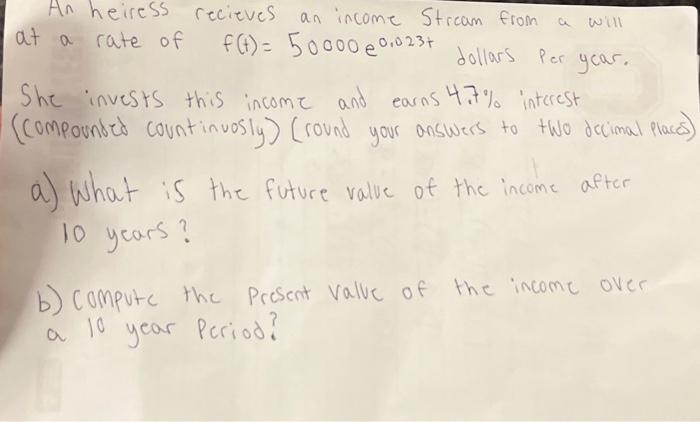 An heiress recieves an income Stream from a will
at a rate of f(t) = 50000e^0.023t dollars Per year.
She invests this income and earns 4.7% interest
(compounbed countinuosly) (round your answers to two decimal places)
a) What is the future value of the income after
10 years?
b) compute the Present value of the income over
a 10 year Period?